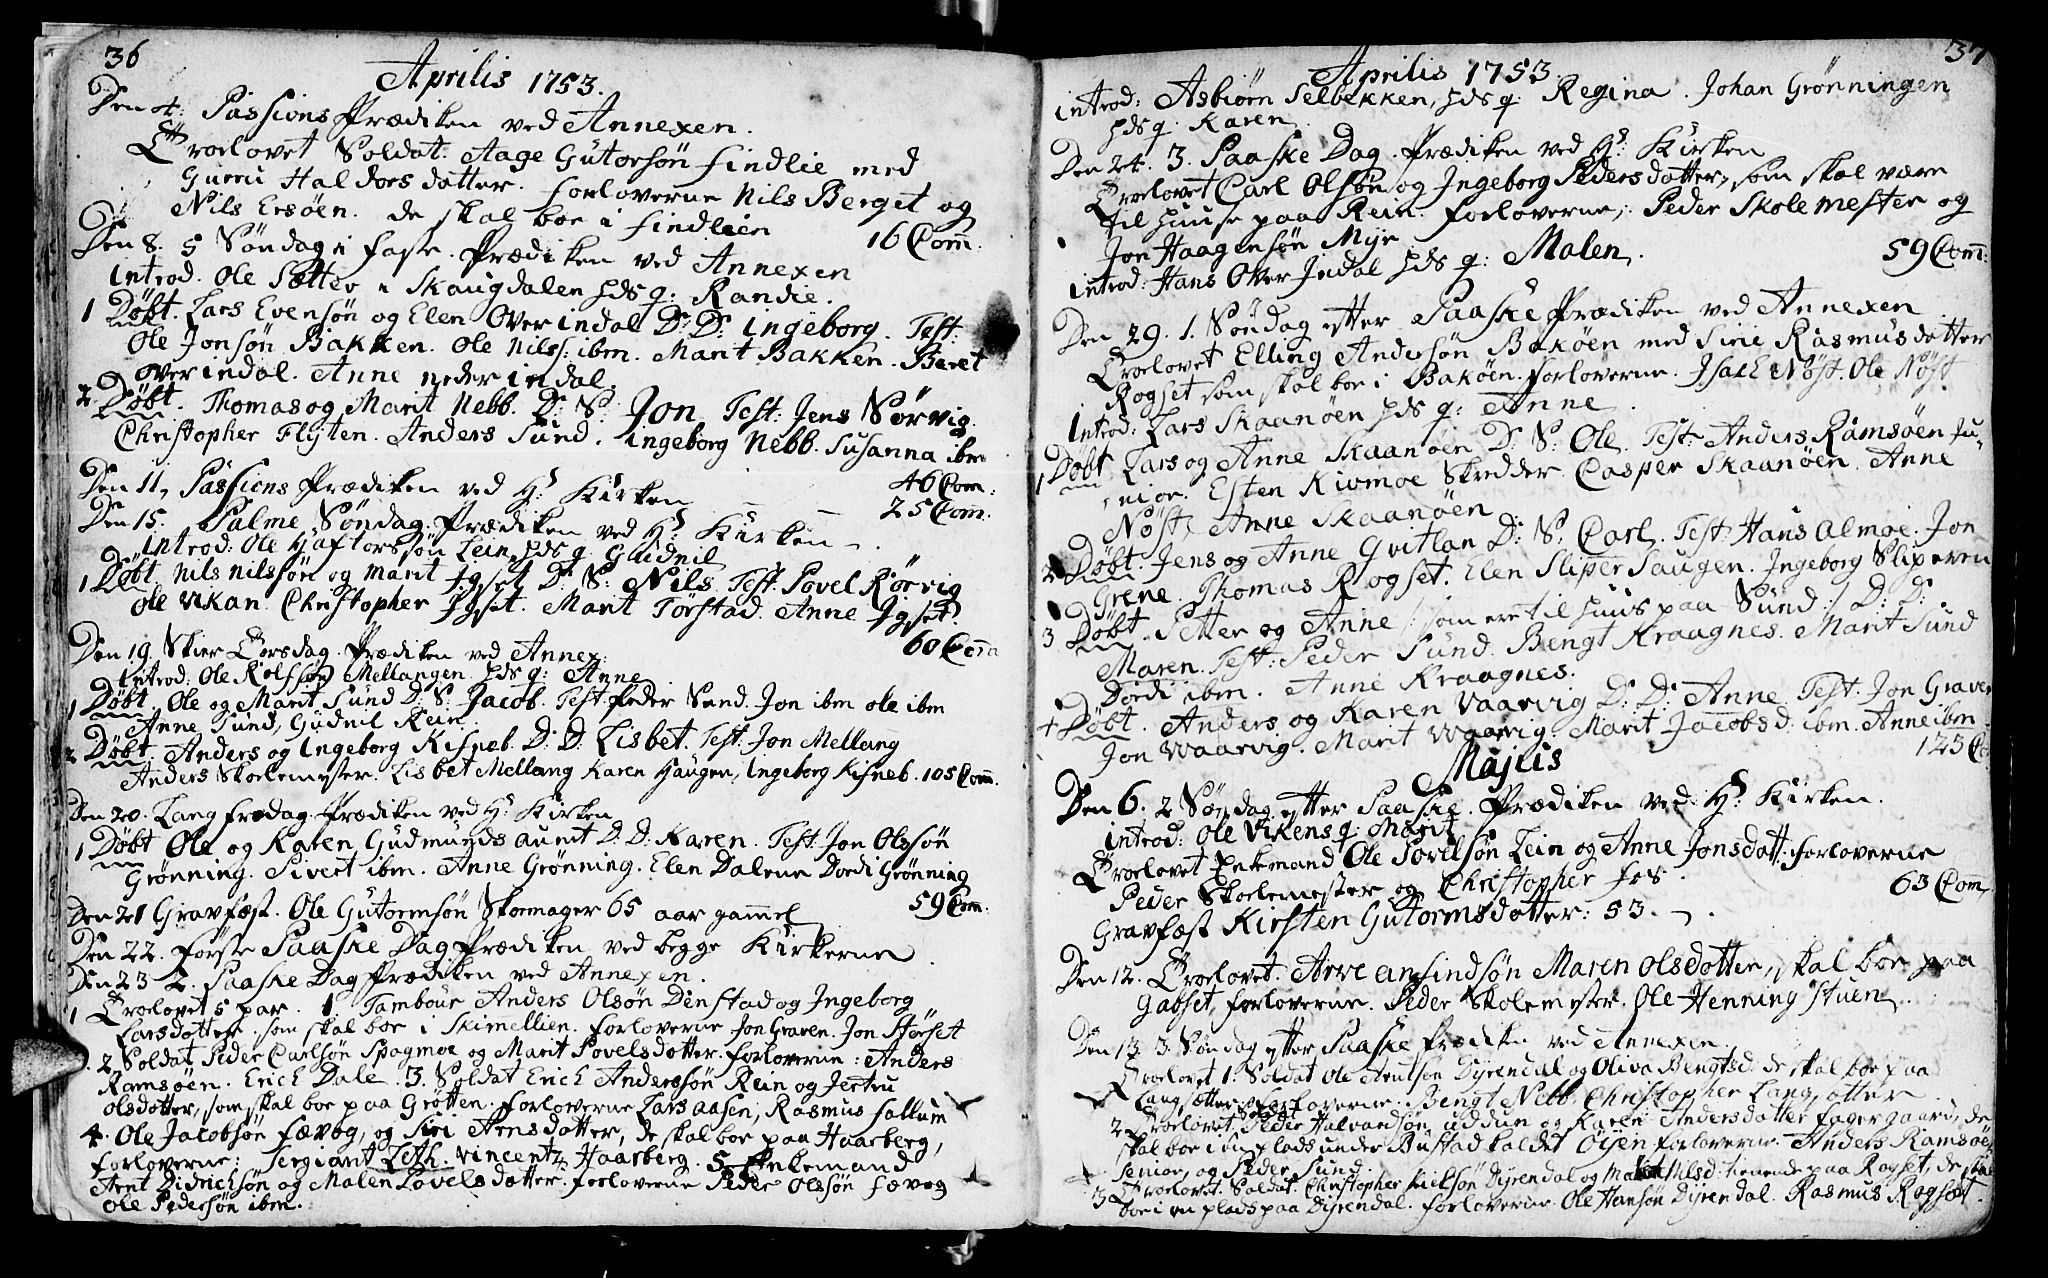 36
Aprilis 1753.
Den 4: Passions Prædiken ved Annexen.
Troelovet Soldat. Aage Gutorsøn Findlie med
Gunru Haldorsdotter. Forloverne Nils Berget og
Nils Ersøen. de skal boe i Findlien
Den 8. 5 Søndag i Faste. Prædiken ved Annexen 16 Com:
introd. Ole Sætter i Skaugdalen hds q: Randie.
1 Døbt. Lars Evensøn og Elen Overindal D: D: Ingeborg. Test:
Ole Jonsøn Bakken. Ole Nilss: ibm. Marit Bakken. Beret
Overindal. Anne nederindal.
2 Døbt. Thomas og Marit Nebb. D: S: Jon Test: Jens Sørvig.
Christopher Flyten. Anders Sund. Ingeborg Nebb. Susanna ibm
Den 11, Passions Prædiken ved H: Kirken 46 Com:
Den 15. Palme Søndag. Prædiken ved H: Kirken 25 Com.
Introd: Ole Haftorssøn Lein hds q Gudnil
1 Døbt Nils Nilssøn og Marit Jgset D: S: Nils Test. Povel Rørvig
Ole Vikan. Christopher Jgset. Marit Torstad. Anne Jgset.
Den 19. Skier Torsdag. Prædiken ved Annex: 60 Com
Introd: Ole Rolfsøn Mellangen hds q: Anne
1 Døbt. Ole og Marit Sund D: S: Jacob. Test. Peder Sund. Jon ibm ole ibm
Anne Sund, Gudnil Rein.
2 Døbt. Anders og Ingeborg Kisneb. D: D: Lisbet. Test: Jon Mellang
Anders Skolemester. Lisbet Mellang Karen Haugen, Ingeborg Kisneb. 105 Com.
Den 20. Langfredag. Prædiken ved H: Kirken
1 Døbt Ole og Karen Gudmunds aunit D: D: Karen. Test: Jon Olssøn
Grønning. Sivert ibm. Anne Grønning. Elen Dalene Dordi Grønning
Den 21 Gravfæst. Ole Gutormsøn Skomager 65 aar gammel 59 Com:
Den 22. Første Paaske Dag Prædiken ved begge Kirkerne.
Den 23 2. Paaske Dag Prædiken ved Annexen.
1 Troelovet 5 par. 1. Tambour Anders Olsøn Denstad og Ingeborg
Larsdotter. som skal boe i Skimellien. Forloverne Jon Graven. Jon Hørset
2. Soldat Peder Carlsøn Spagmoe og Marit Povelsdotter. Forloverne: Anders
Ramsøen. Erich Dale. 3. Soldat Erich Anderssøn Rein og Jertru
olsdotter, som skal boe paa Grøtten. Forloverne Lars Aasen, Rasmus Sollum
4. Ole Jacobsøn Fævog, og Siri Arnsdotter, de skal boe paa Haarberg,
Forloverne: Sergiant Leth. Vincentz Haarberg. 5. Enkemand
Arnt Didrichsøn og Malen Povelsdotter. Forloverne Peder Olssøn Fævog
Ole Pedersøn ibm.
37
Aprilis 1753.
introd: Asbiørn Selbekken, hds q. Regina. Johan Grønningen
hds q. Karen.
Den 24. 3. Paaske Dag. Prædiken ved H: Kirken
Troelovet Carl Olsøn og Ingeborg Pedersdotter, som skal være
til Huuse paa Rein. Forloverne, Peder Skolemester og
Jon Haagensøn Myr. 59 Com:
introd: Hans Over Jndal hds q: Malen.
Den 29. 1. Søndag efter Paaske Prædiken ved Annexen
Troelovet Elling Andersøn Bakøen med Siri Rasmusdotter
Rogset som skal boe i Bakøen. Forloverne. Isach Nøst. Ole Nøst
Introd: Lars Skaanøen hds q: Anne.
1 Døbt Lars og Anne Skaanøen D: S: Ole. Test: Anders Ramsøen Ju-
nior. Esten Kivmoe Skredder. Casper Skaanøen. Anne
Nøst. Anne Skaanøen
2 Døbt. Jens og Anne Gvitlan D: S: Carl. Test: Hans Almoe. Jon
Grene. Thomas Rogset. Elen Sliper Haugen. Ingeborg Sliperen
3 Døbt. Petter og Anne /: som ere til huus paa Sund :/ D: D:
Maren. Test: Peder Sund. Bengt Kraagnes. Marit Sund
Dordi ibm. Anne Kraagnes.
4 Døbt. Anders og Karen Vaarvig D: D: Anne Test: Jon Graven
Jon Waarvig. Marit Waarvig. Marit Jacobsd: ibm. Anne ibm
125 Co
Majus
Den 6. 2 Søndag efter Paaske. Prædiken ved H: Kirken.
introd: Ole Vikens q: Marit
Troelovet Enkemand Ole Povelsøn Lein og Anne Jonsdatt: Forloverne
Peder Skolemester og Christopher Fes. 63 Com,
Gravfæst Kirsten Gutormsdotter: 53.
Den 12. Troelovet Arve Amsindsøn Maren Olsdotter, skal boe paa
Gabset, Forloverne. Peder Skolemester. Ole Henning Stuen.
Den 13. 3. Søndag efter Paaske Prædiken ved Annexen.
Troelovet 1. Soldat Ole Arntsen Dyrendal og Oliva Bengtsd: de skal boe paa
Langsætter. Forloverne. Bengt Nebb. Christopher Langsætter.
2 Troelovet. Peder Halvardsøn Uddun og Karen Andersdotter Fagergaard, de
skal boe i en plads under Bustad kaldet Øyen. Forloverne. Anders Ramsøen
Senior, og Peder Sund.
3 Troelovet. Soldat. Christopher Nielsøn Dyrendal og Marit Nilsd: tienende paa Rogset, de skal
boe i en plads paa Dyrendal. Forloverne. Ole Hansøn Dyrendal. Rasmus Rogset.